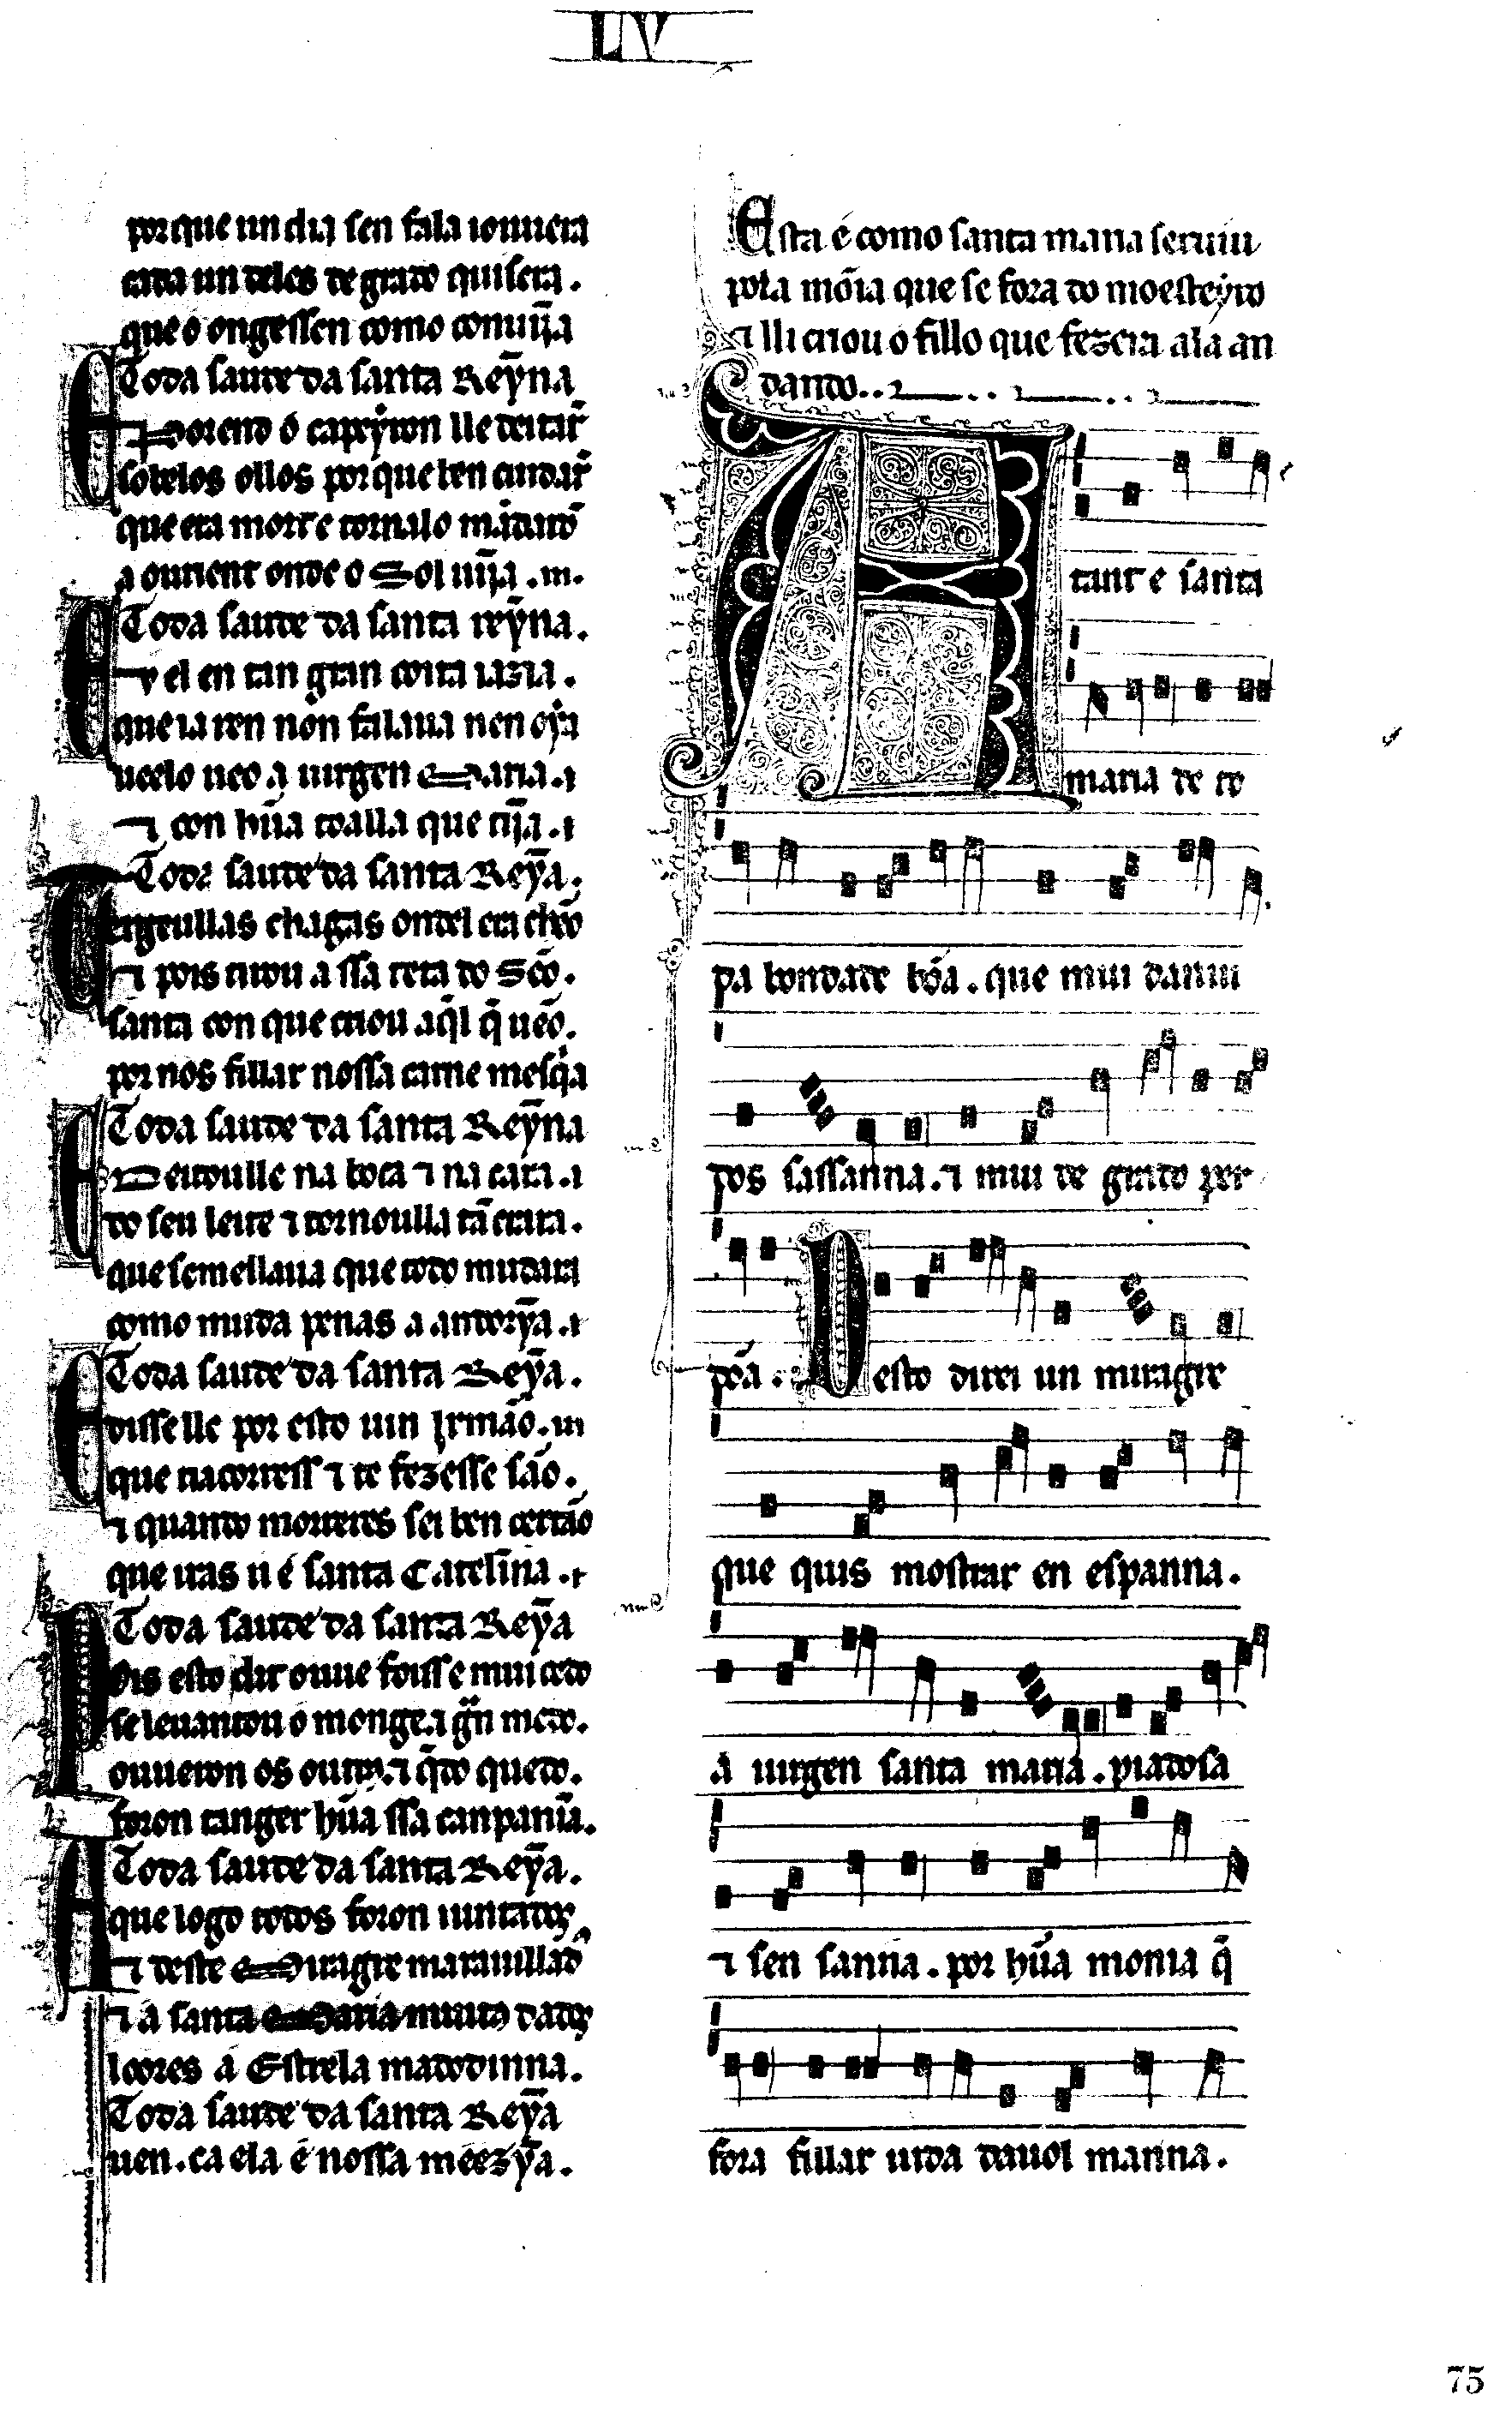 LIV
porque un dia sen fala iouuera
cada un deles de grado quisera.
que o ongessen como conuĩja
Toda saude da santa Reỹna
E Porend o capeyron lle deitar̃
sobelos ollos porque ben cuidar̃
que era mort e tornalo mãdarõ
a ourient onde o Sol uĩja.
Toda saude da santa reỹna.
E u el en tan gran coita iazia.
que ia ren non falaua nen oya
ueelo ueo a uirgen Maria.
⁊ con hũa toalla que tĩja.
Toda saude da santa Reỹa.
Tergeullas chagas ondel era chẽo
⁊ pois tirou a ssa teta do Sẽo.
santa con que criou aq̃l q̃ uẽo.
por nos fillar nossa carne mesq̃a
Toda saude da santa Reỹna
E Deitoulle na boca ⁊ na cara.
do seu leite ⁊ tornoulla tã crara.
que semellaua que todo mudara
como muda penas a andorỹa.
Toda saude da santa Reỹa.
E disselle por esto uin Irmão.
que tiacorress ⁊ te fezesse são.
⁊ quando morreres sei ben certão
que uras u é santa Catelĩna.
Toda saude da santa Reỹa
Pois esto dit ouue foisse mui cedo
se leuantou o monge. a grã medo.
ouueron os outros. ⁊ q̃do quedo.
foron tanger hũa ssa canpanĩa.
Toda saude da santa Reỹa.
A que logo todos foron iuntados
⁊ deste Miragre marauillados
⁊ a santa Maria muitos dados
loores a Estrela madodinna.
Toda saude da santa Reỹa
uen. ca ela é nossa meezỹa.
Esta é como santa maria seruiu
pola mõia que se fora do moesteyro
⁊ lli criou o fillo que fezera ala an
dando..
A tant e santa
maria de to
da bondade bõa. que mui danui
dos sassanna. ⁊ mui de grado per
dõa. Desto direi un miragre
que quis mostrar en espanna.
a uirgen santa maria. piadosa
⁊ sen sanna. por hũa monia q̃
fora fillar uida dauol manna.
75